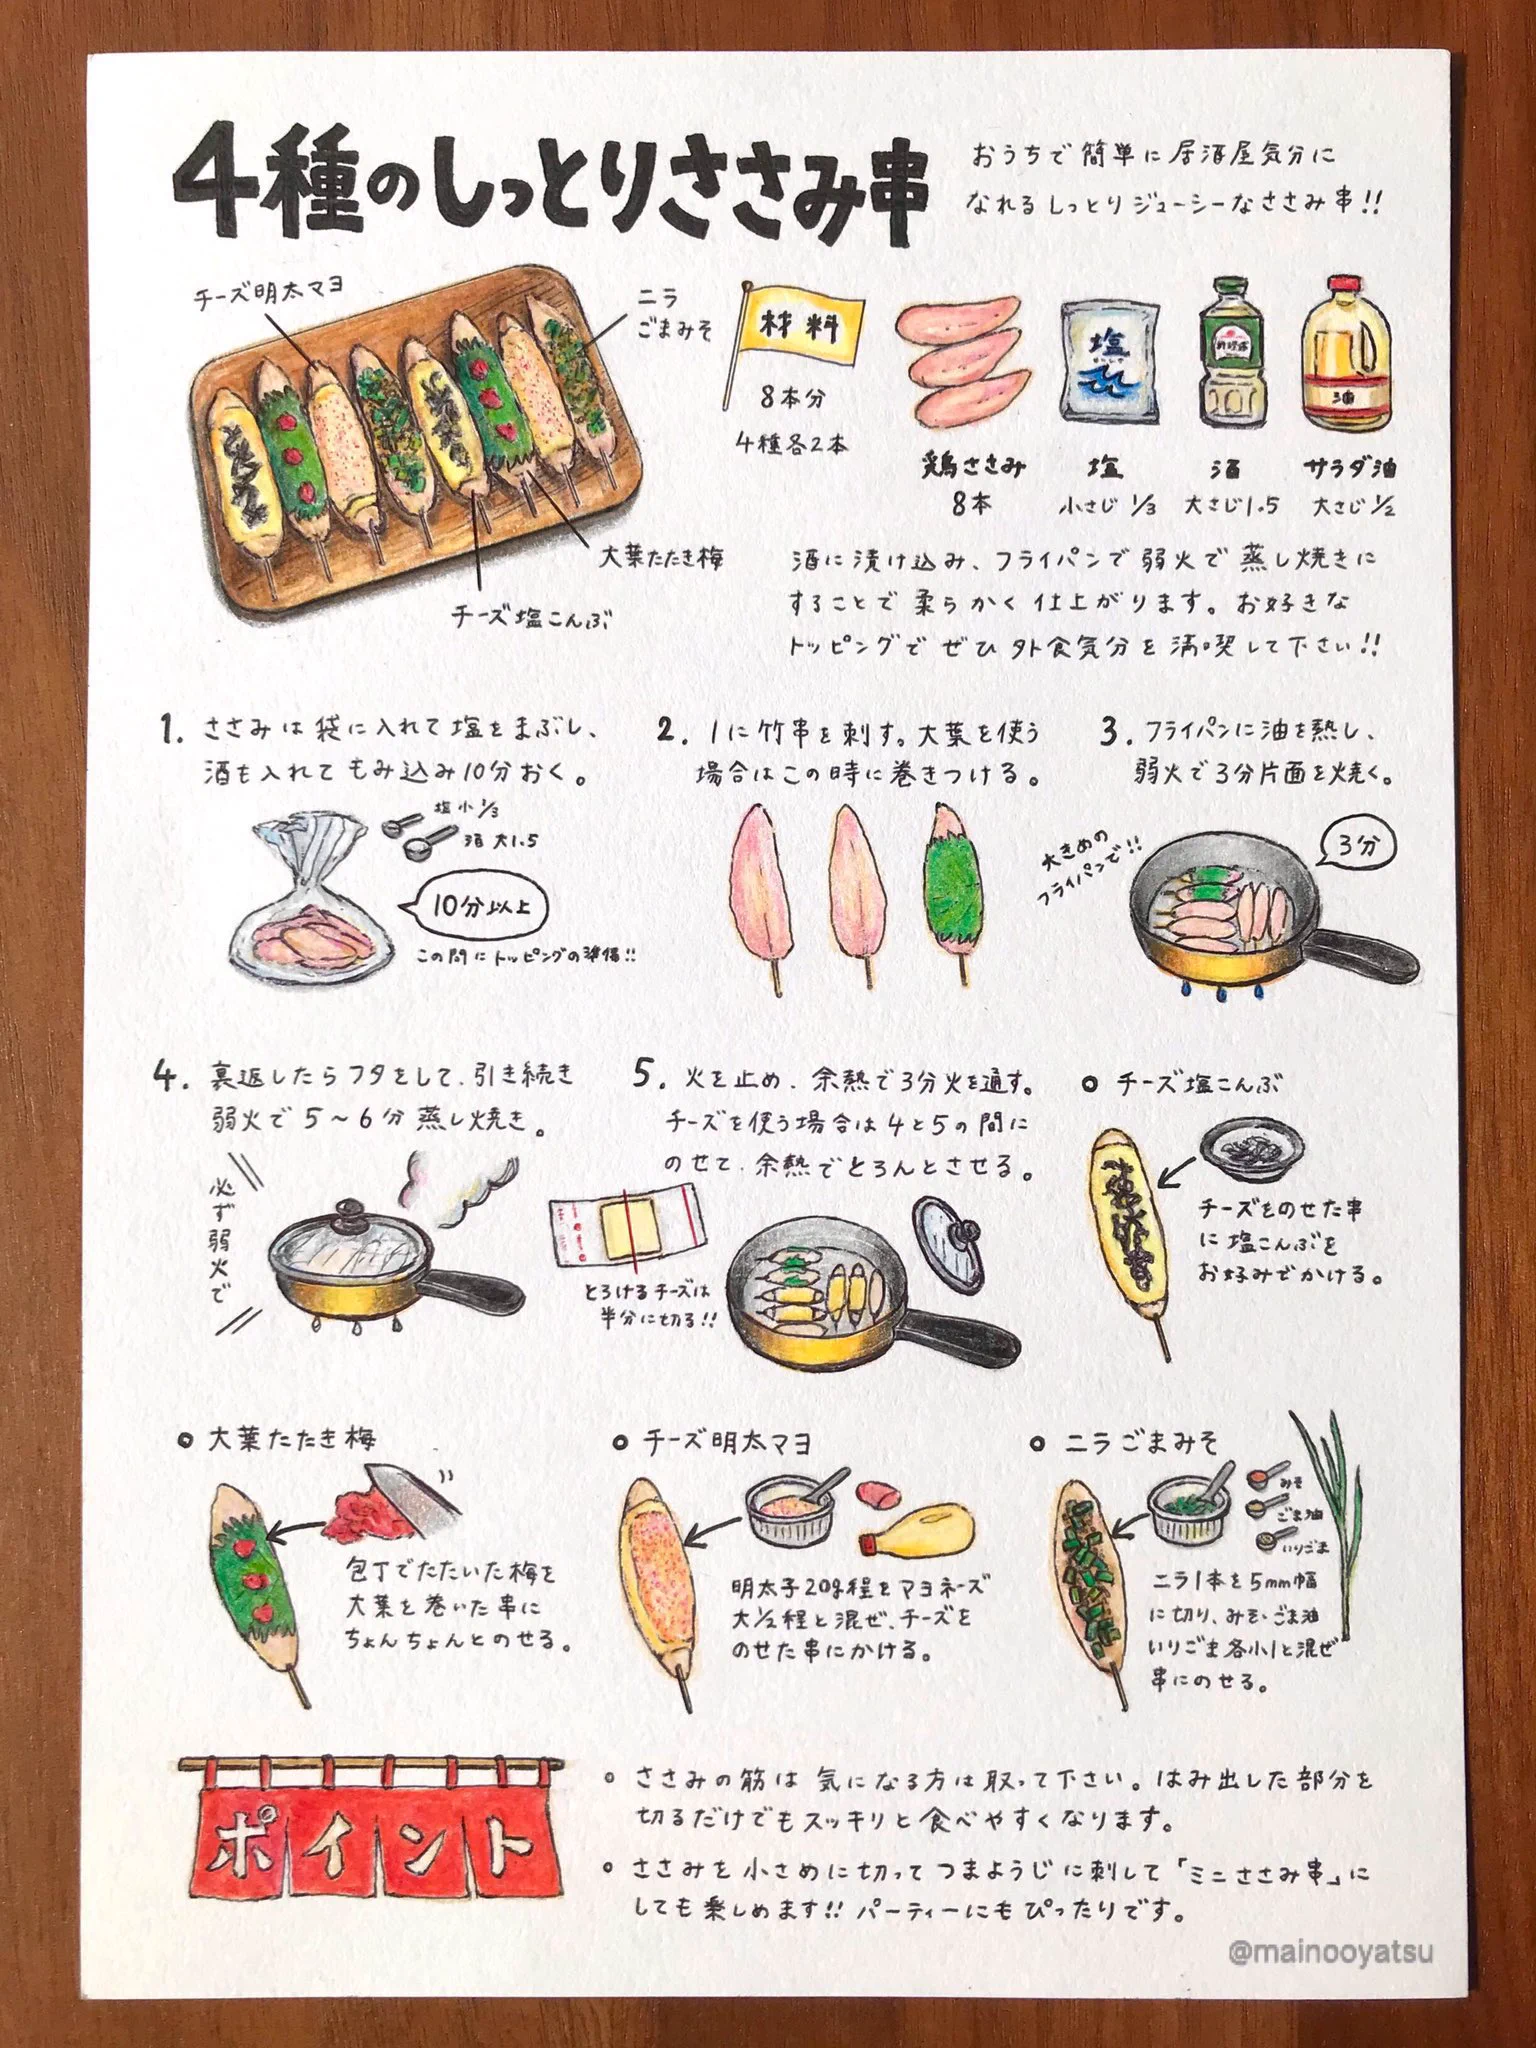 4種のしっとりささみ串
おうちで簡単に居酒屋気分に
なれるしっとりジューシーなささみ串!!
チーズ明太マヨ
ニラ
ごまみそ
大葉たたき梅
チーズ塩こんぶ
材料
8本分
4種各2本
塩
油
鶏ささみ
8本
塩
小さじ1/3
酒
大さじ1.5
サラダ油
大さじ1/2
酒に漬け込み、フライパンで弱火で蒸し焼きに
することで柔らかく仕上がります。お好きな
トッピングでぜひ外食気分を満喫して下さい!!
1. ささみは袋に入れて塩をまぶし、
酒も入れてもみ込み10分おく。
塩小1/3
酒大1.5
10分以上
この間にトッピングの準備!!
2. 1に竹串を刺す。大葉を使う
場合はこの時に巻きつける。
3. フライパンに油を熱し、
弱火で3分片面を焼く。
大きめの
フライパンで!!
3分
4. 裏返したらフタをして、引き続き
弱火で5〜6分蒸し焼き。
必ず弱火で
5. 火を止め、余熱で3分火を通す。
チーズを使う場合は4と5の間に
のせて、余熱でとろんとさせる。
とろけるチーズは
半分に切る!!
チーズ塩こんぶ
チーズをのせた串
に塩こんぶを
お好みでかける。
大葉たたき梅
包丁でたたいた梅を
大葉を巻いた串に
ちょんちょんとのせる。
チーズ明太マヨ
明太子20g程をマヨネーズ
大1/2程と混ぜ、チーズを
のせた串にかける。
ニラごまみそ
みそ
ごま油
いりごま
ニラ1本を5mm幅
に切り、みそ・ごま油
いりごま各小1と混ぜ
串にのせる。
ポイント
ささみの筋は気になる方は取って下さい。はみ出した部分を
切るだけでもスッキリと食べやすくなります。
ささみを小さめに切ってつまようじに刺して「ミニささみ串」に
しても楽しめます!! パーティーにもぴったりです。
@mainooyatsu